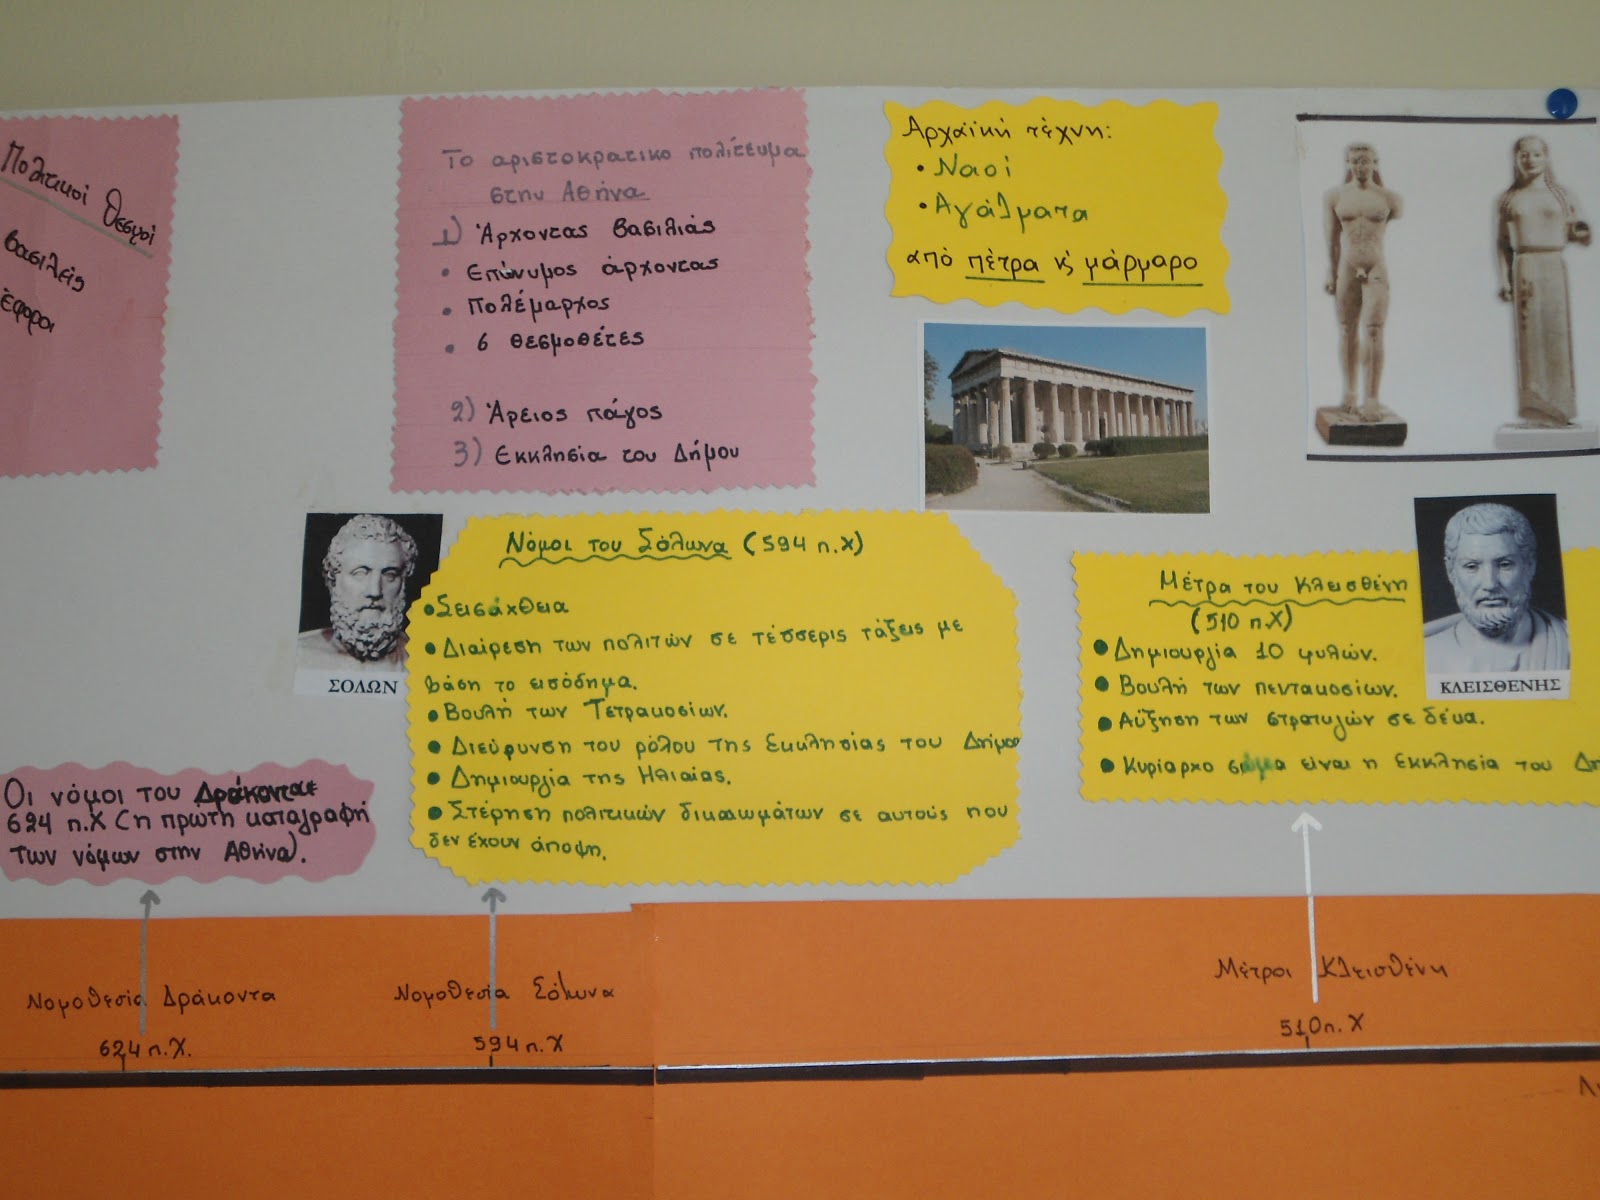 Πολιτικοί θεσμοί
βασιλείς
έφοροι
Το αριστοκρατικο πολίτευμα
στην Αθήνα
1) Άρχοντας βασιλιάς
• Επώνυμος άρχοντας
• Πολέμαρχος
• 6 θεσμοθέτες
2) Άρειος πάγος
3) Εκκλησία του Δήμου
Αρχαϊκή τέχνη:
• Ναοί
• Αγάλματα
από πέτρα κ' μάρμαρο
ΣΟΛΩΝ
Νόμοι του Σόλωνα (594 π.Χ)
• Σεισάχθεια
• Διαίρεση των πολιτών σε τέσσερις τάξεις με
βάση το εισόδημα.
• Βουλή των Τετρακοσίων.
• Διεύρυνση του ρόλου της Εκκλησίας του Δήμου
• Δημιουργία της Ηλιαίας.
• Στέρηση πολιτικών δικαιωμάτων σε αυτούς που
δεν έχουν άποψη.
Μέτρα του Κλεισθένη
(510 π.Χ)
• Δημιουργία 10 φυλών.
• Βουλή των πεντακοσίων.
• Αύξηση των στρατηγών σε δέκα.
• Κυρίαρχο σώμα είναι η Εκκλησία του Δη
ΚΛΕΙΣΘΕΝΗΣ
Οι νόμοι του Δράκοντα
624 π.Χ (η πρώτη καταγραφή
των νόμων στην Αθήνα).
Νομοθεσία Δράκοντα
624 π.Χ.
Νομοθεσία Σόλωνα
594 π.Χ
Μέτροι Κλεισθένη
510 π.Χ